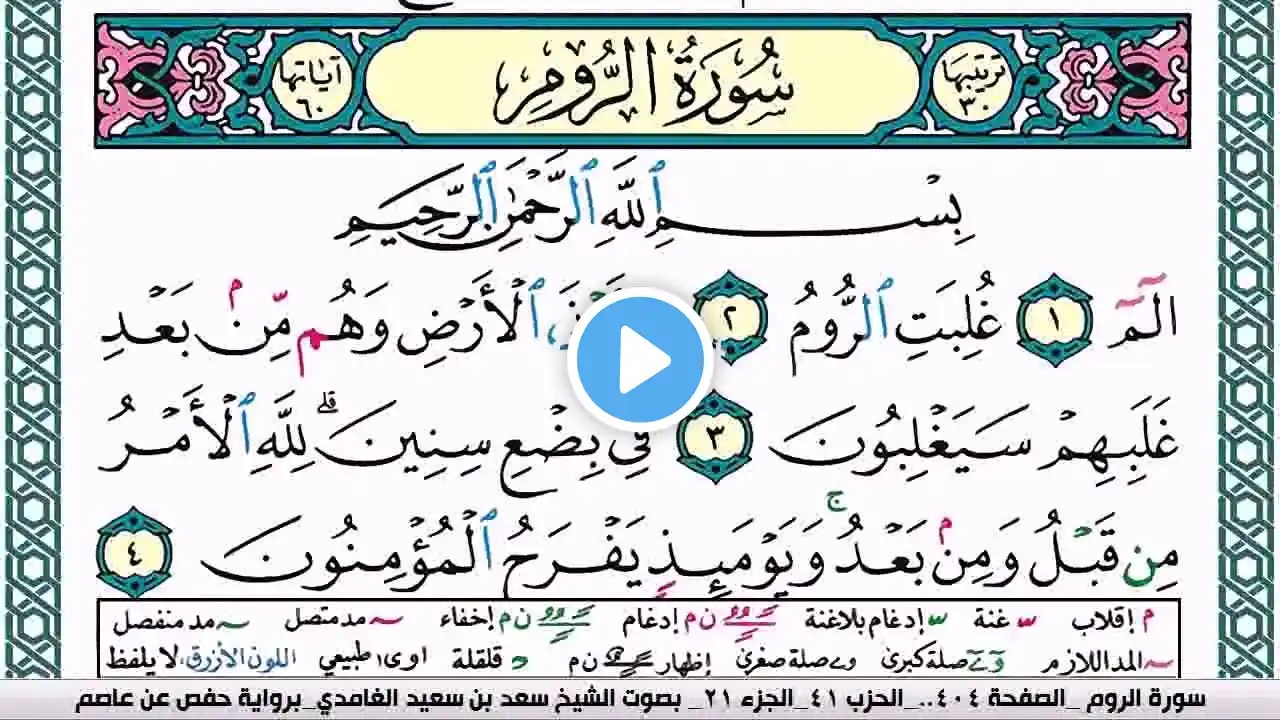 ترتيبها ٣٠ سُورَةُ الرُّومِ آياتها ٦٠
بِسْمِ ٱللَّهِ ٱلرَّحْمَٰنِ ٱلرَّحِيمِ
الٓمٓ ١ غُلِبَتِ ٱلرُّومُ ٢ ٱلْأَرْضِ وَهُم مِّنۢ بَعْدِ
غَلَبِهِمْ سَيَغْلِبُونَ ٣ فِي بِضْعِ سِنِينَۗ لِلَّهِ ٱلْأَمْرُ
مِن قَبْلُ وَمِنۢ بَعْدُۚ وَيَوْمَئِذٍ يَفْرَحُ ٱلْمُؤْمِنُونَ ٤
م إقلاب غنة إدغام بلاغنة ن م إدغام ن م إخفاء مد متصل مد منفصل
المد اللازم صلة كبرى صلة صغرى إظهار ن م قلقلة اوى ا طبيعي اللون الأزرق، لا يلفظ
سورة الروم _الصفحة ٤٠٤.._الحزب ٤١_الجزء ٢١_ بصوت الشيخ سعد بن سعيد الغامدي_برواية حفص عن عاصم